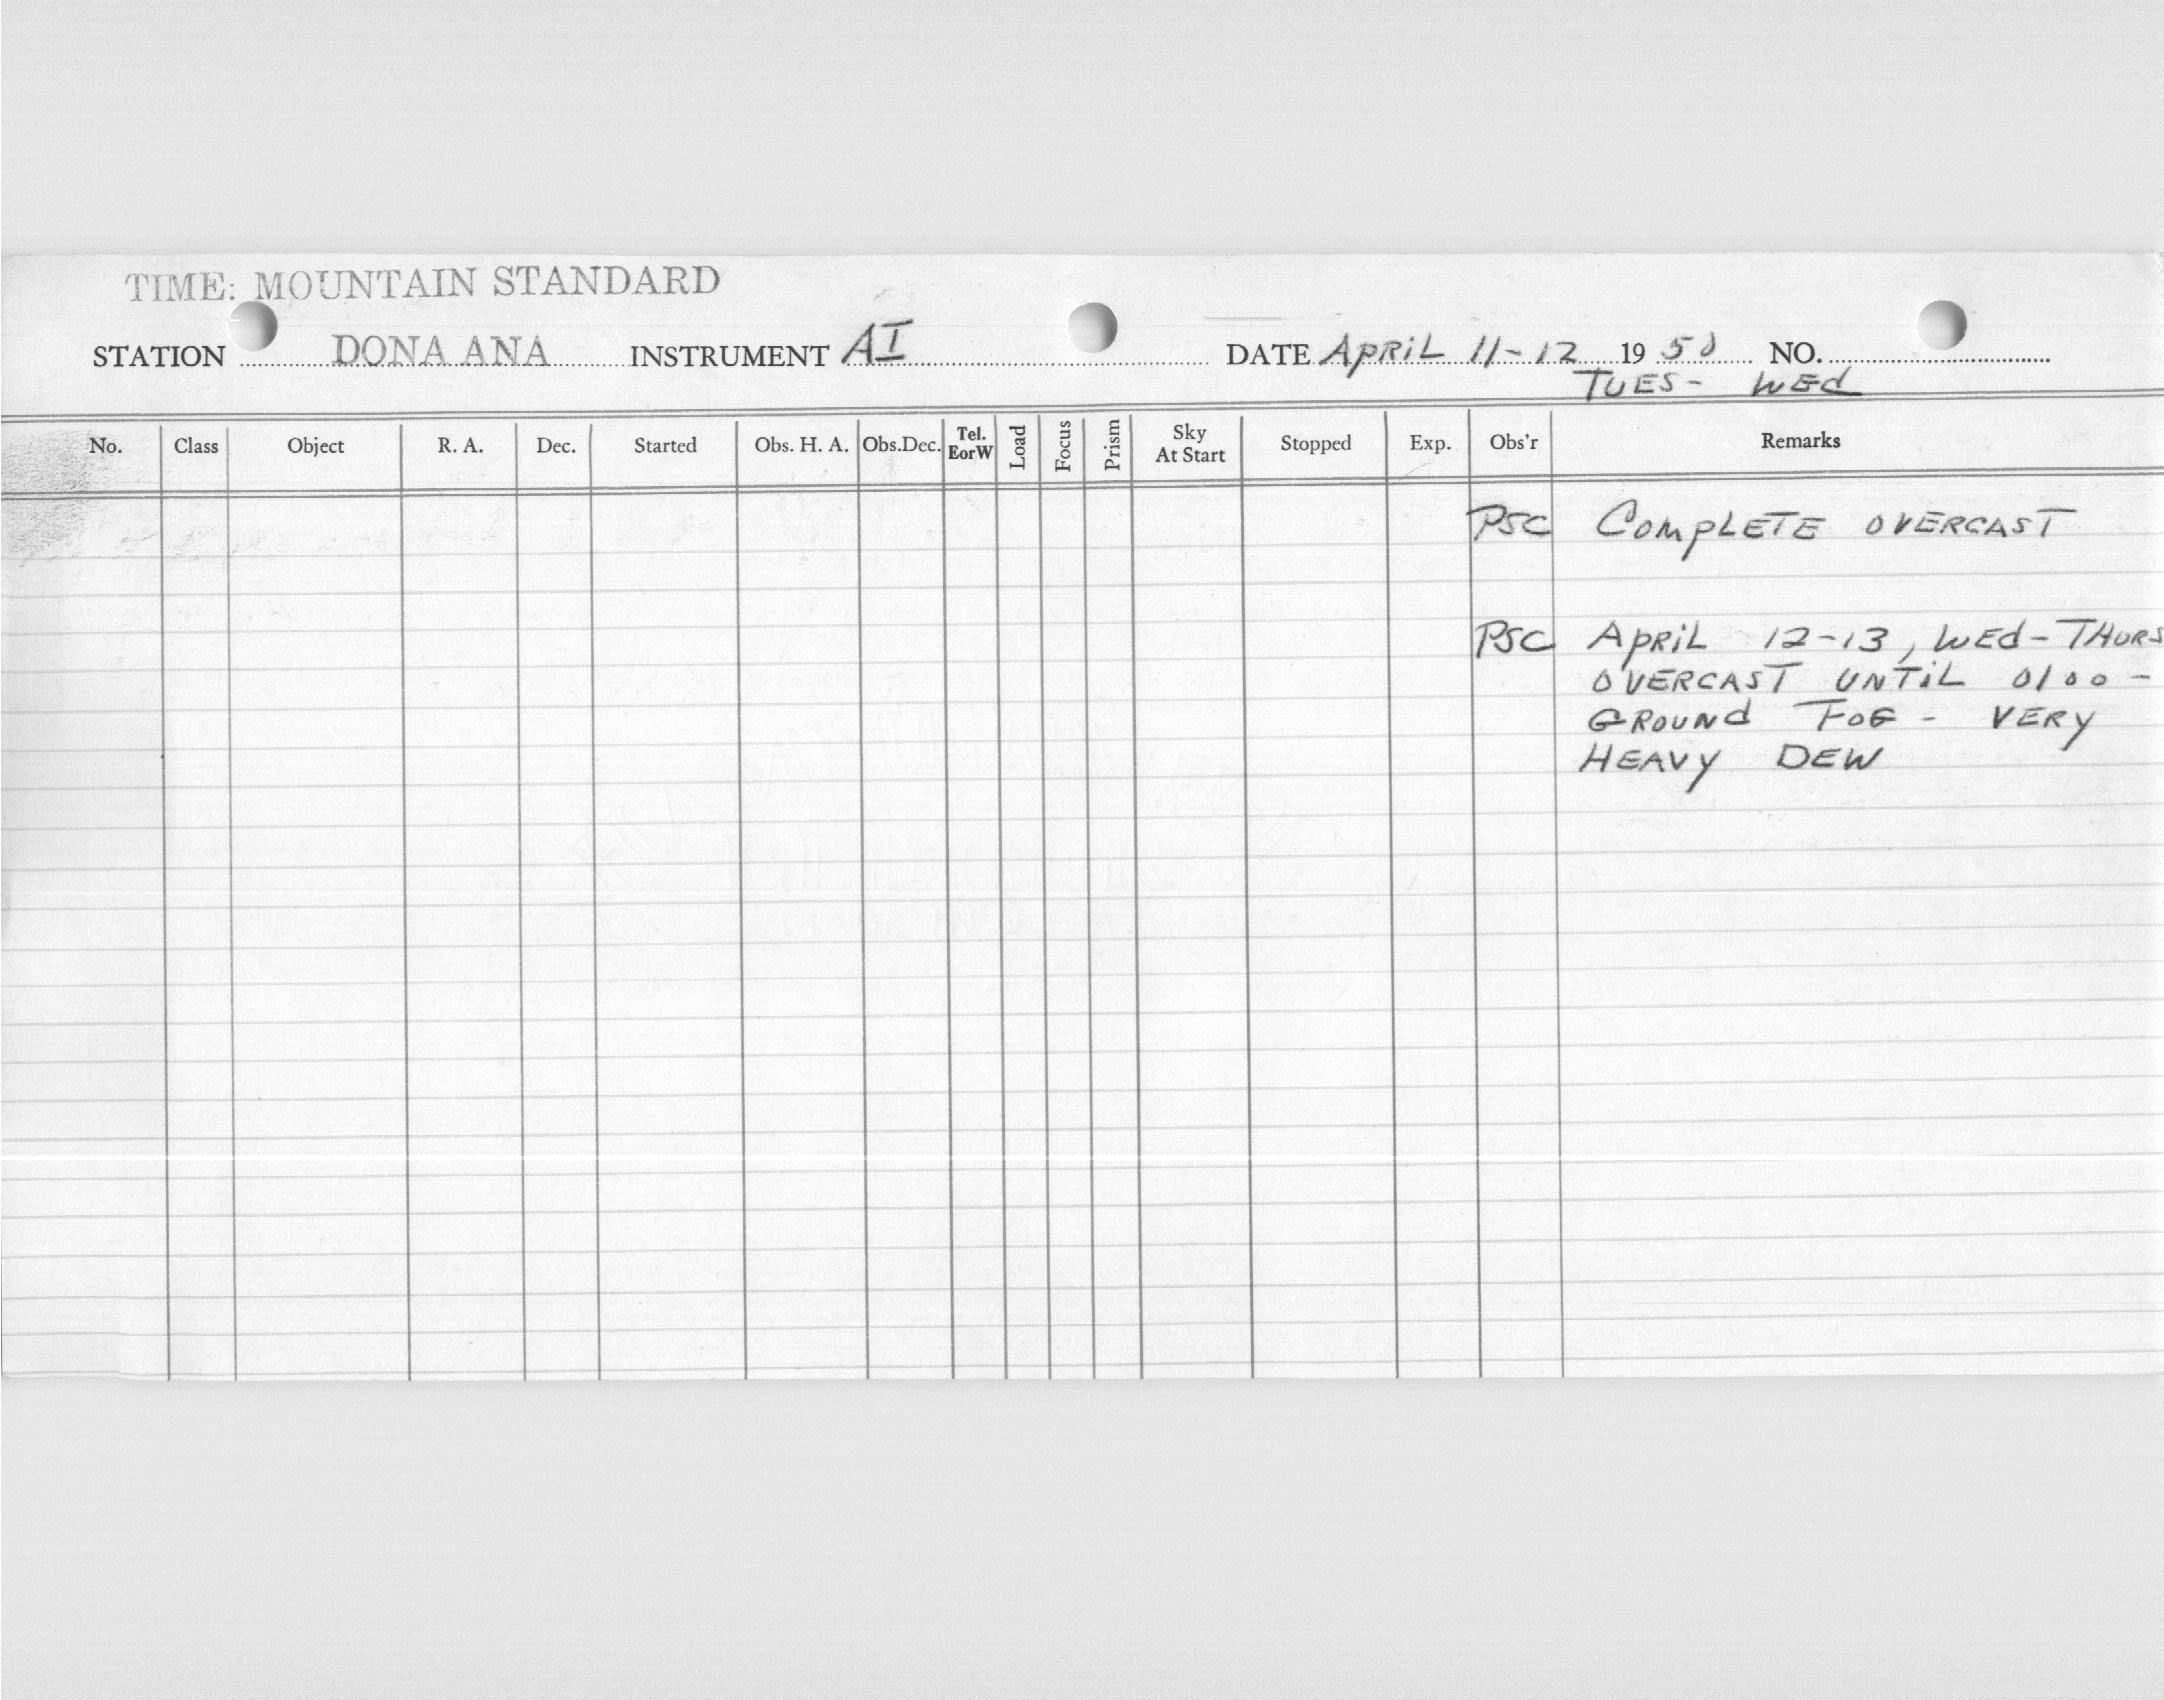 TIME: MOUNTAIN STANDARD
STATION DONA ANA INSTRUMENT AI DATE APRiL 11-12 19 50 NO.
TUES - WEd
No. Class Object R. A. Dec. Started Obs. H. A. Obs.Dec. Tel. EorW Load Focus Prism Sky At Start Stopped Exp. Obs'r Remarks
PSC COMPLETE OVERCAST
PSC APRiL 12-13, WEd-THURS
OVERCAST UNTiL 0100 -
GROUNd FOG - VERY
HEAVY DEW